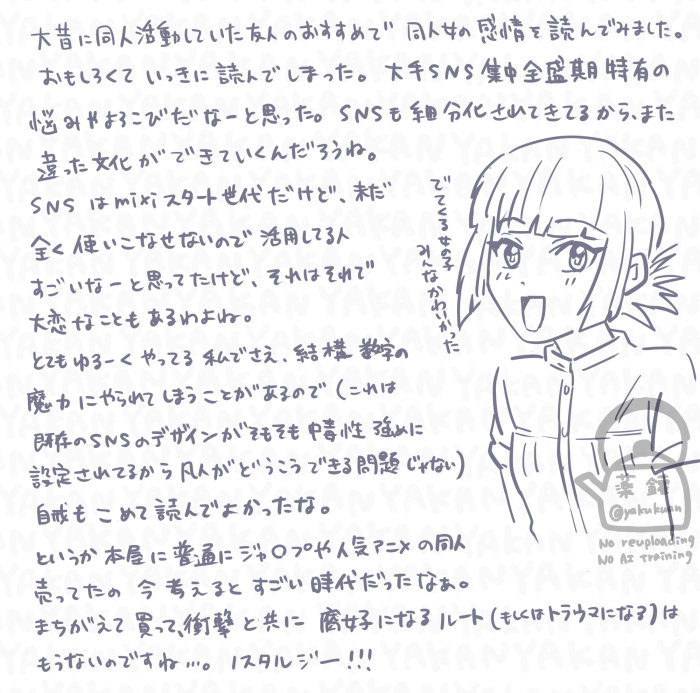 大昔に同人活動していた友人のおすすめで 同人女の感情を読んでみました。
おもしろくて いっきに読んでしまった。大手SNS集中全盛期特有の
悩みやよろこびだなーと思った。SNSも細分化されてきてるから、また
違った文化ができていくんだろうね。
SNSはmixiスタート世代だけど、未だ
全く使いこなせないので活用してる人
すごいなーと思ってたけど、それはそれで
大変なこともあるわよね。
とてもゆるーくやってる私でさえ、結構数字の
魔力にやられてしまうことがあるので(これは
既存のSNSのデザインがそもそも中毒性強めに
設定されてるから凡人がどうこうできる問題じゃない)
自戒もこめて読んでよかったな。
というか本屋に普通にジャ〇プや人気アニメの同人
売ってたの今考えるとすごい時代だったなぁ。
まちがえて買って、衝撃と共に腐女子になるルート(もしくはトラウマになる)は
もうないのですね…。ノスタルジー!!!
でてくる女の子
みんなかわいかった
葉鑵
@yakukuan
No reuploading
No AI training
YAKAN YAKAN YAKAN YAKAN